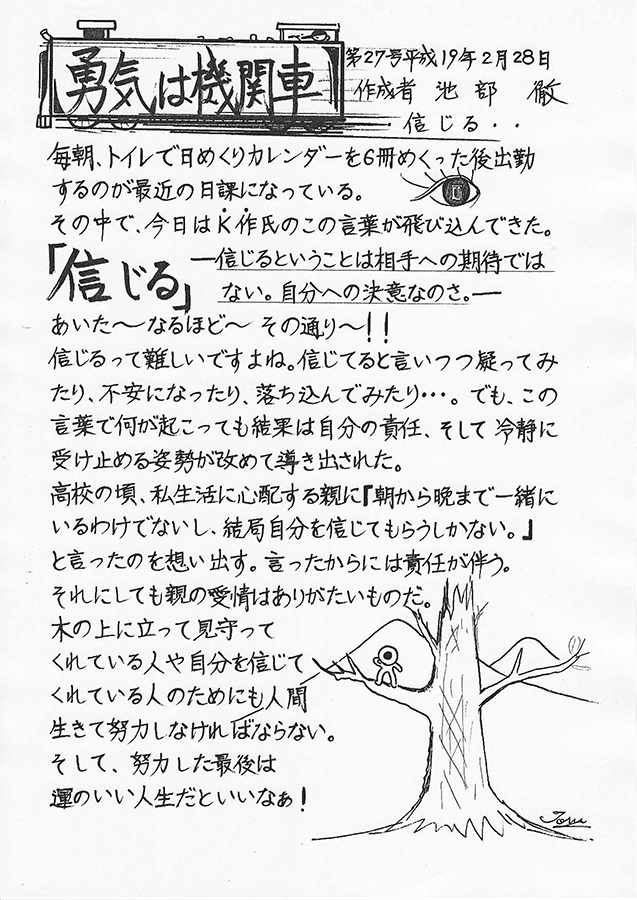 勇気は機関車
第27号平成19年2月28日
作成者 池部 徹
・信じる・・
毎朝、トイレで日めくりカレンダーを6冊めくった後出勤
するのが最近の日課になっている。
その中で、今日はK・作氏のこの言葉が飛び込んできた。
「信じる」
―信じるということは相手への期待では
ない。自分への決意なのさ。―
あいた〜なるほど〜 その通り〜!!
信じるって難しいですよね。信じてると言いつつ疑ってみ
たり、不安になったり、落ち込んでみたり・・・。でも、この
言葉で何が起こっても結果は自分の責任、そして冷静に
受け止める姿勢が改めて導き出された。
高校の頃、私生活に心配する親に『朝から晩まで一緒に
いるわけでないし、結局自分を信じてもらうしかない。』
と言ったのを想い出す。言ったからには責任が伴う。
それにしても親の愛情はありがたいものだ。
木の上に立って見守って
くれている人や自分を信じて
くれている人のためにも人間
生きて努力しなければならない。
そして、努力した最後は
運のいい人生だといいなぁ!
Toru